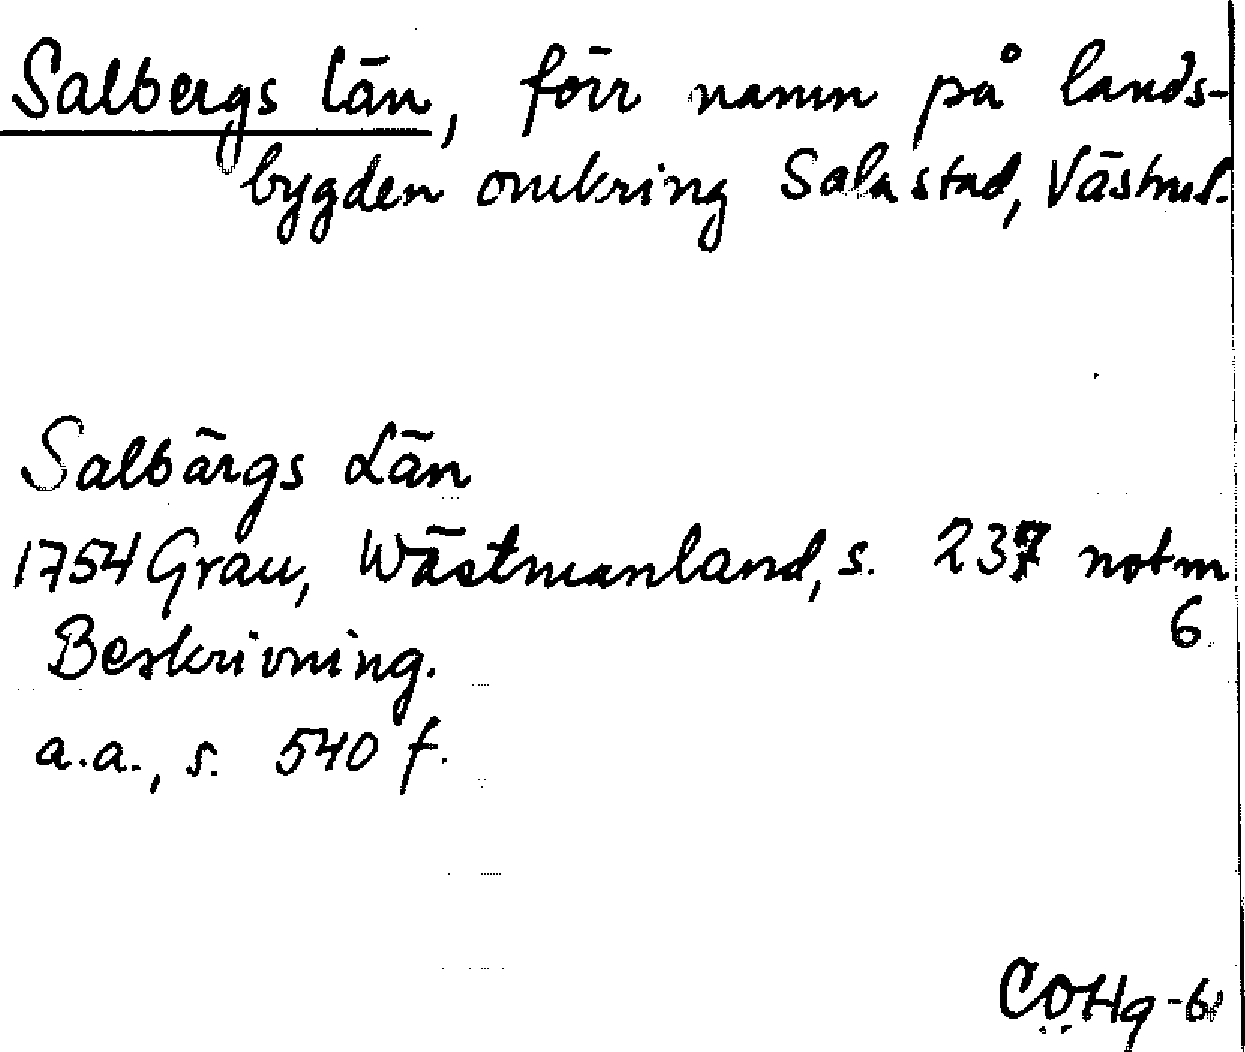 Salbergs län, förr namn på lands-
bygden omkring Sala stad, Västml.
Salbärgs Län
1754 Grau, Wästmanland, s. 237 not m
6
Beskrivning.
a.a., s. 540 f.
CÖHg -61